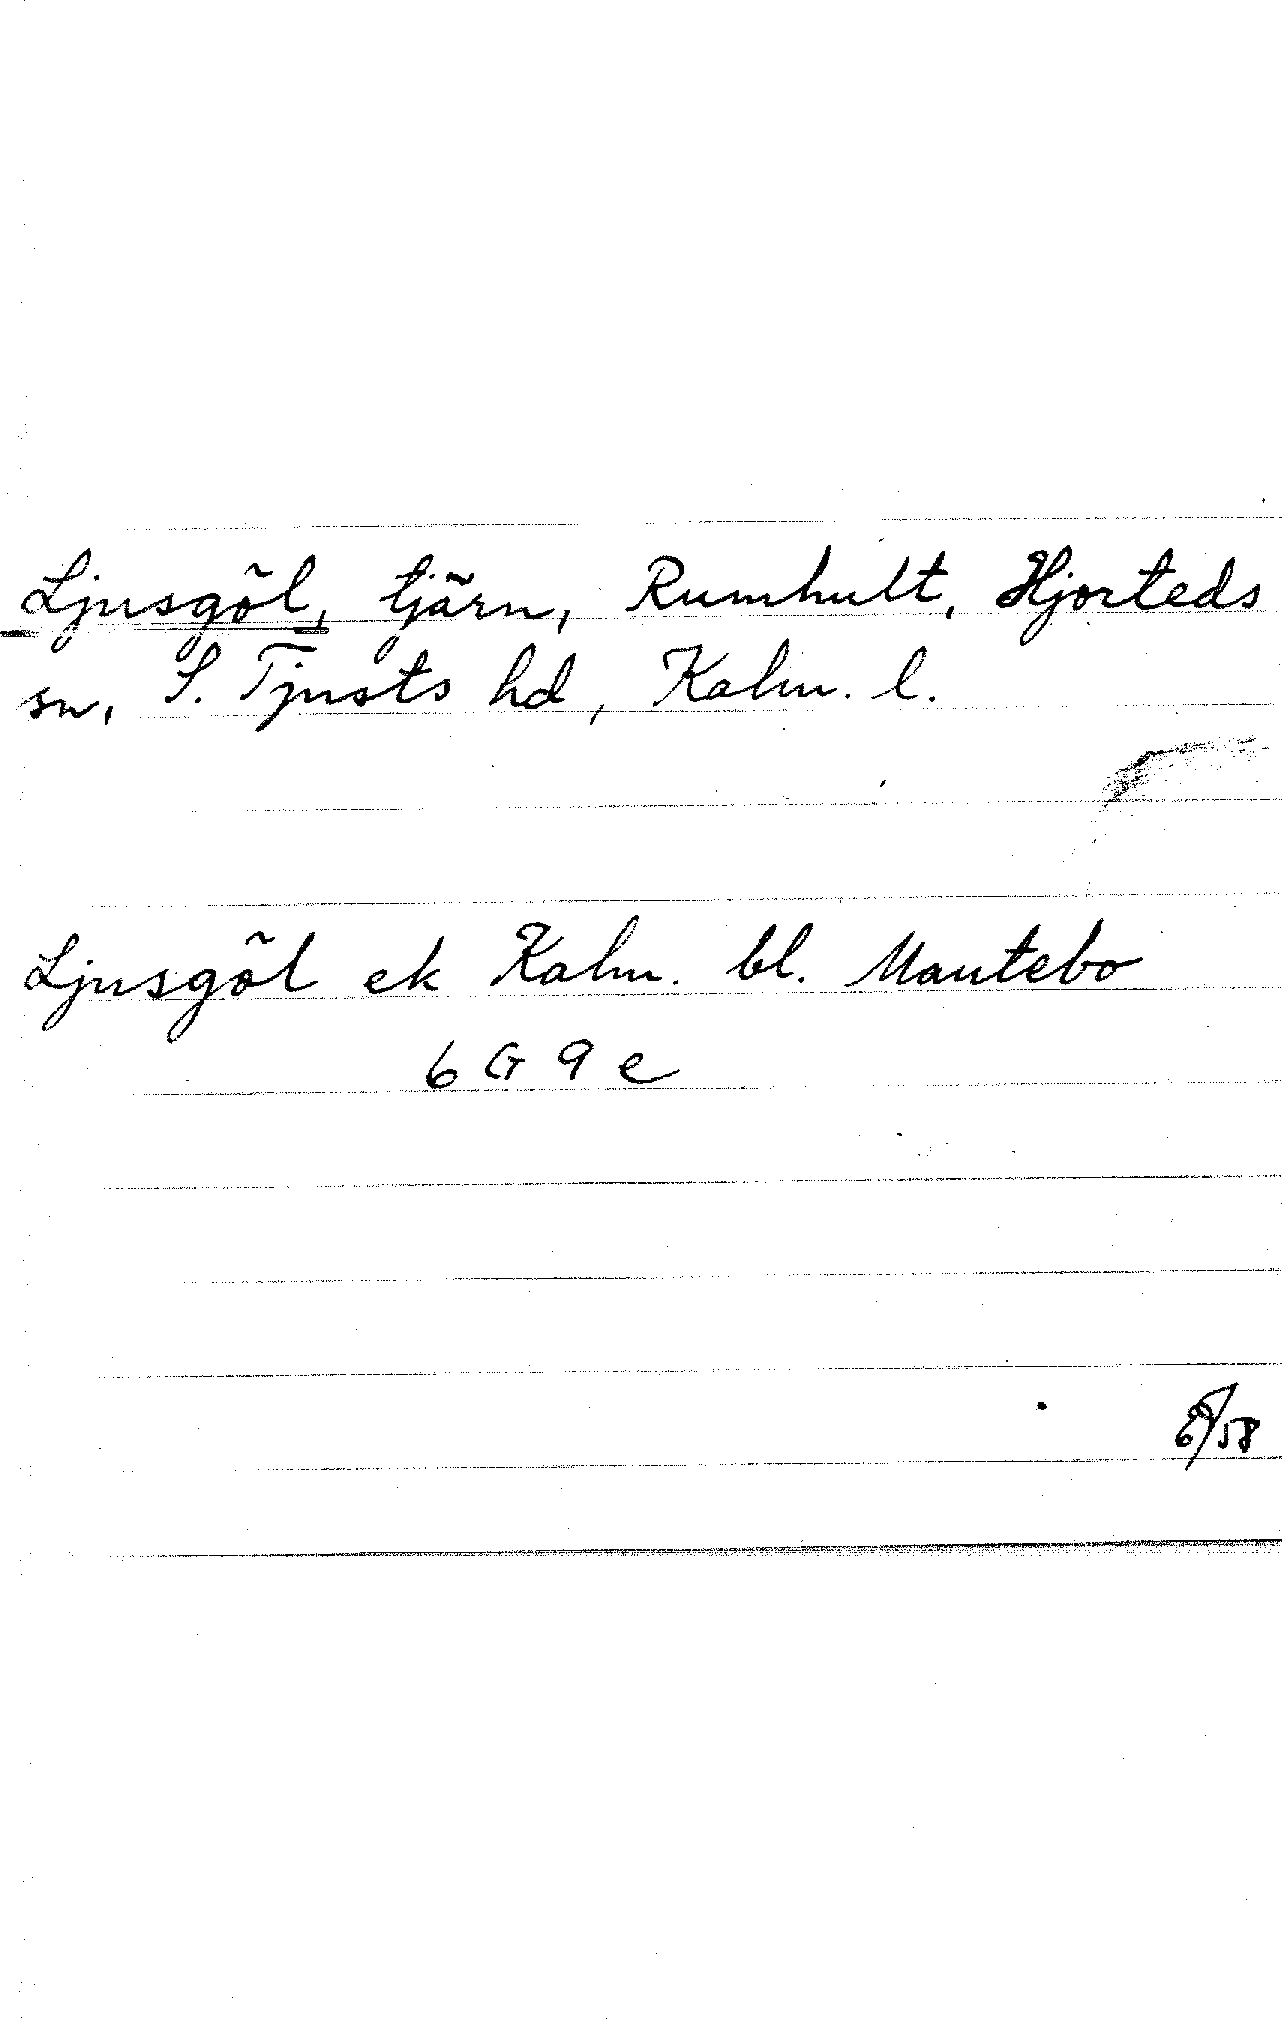 Ljusgöl, tjärn, Rumhult, Hjorteds
sn, S. Tjusts hd, Kalm. l.
Ljusgöl ek Kalm. bl. Mantebo
6 G 9 e